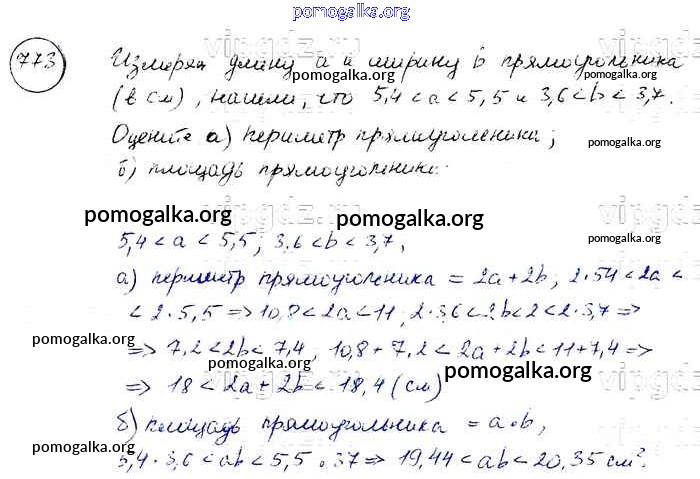 pomogalka.org
773 Измеряя длину a и ширину b прямоугольника
pomogalka.org pomogalka.org
(в см), нашли, что 5,4 < a < 5,5 и 3,6 < b < 3,7.
pomogalka.org
Оцените а) периметр прямоугольника;
pomogalka.org
б) площадь прямоугольника.
vipgdz.ru
pomogalka.org pomogalka.org
5,4 < a < 5,5; 3,6 < b < 3,7,
pomogalka.org
а) периметр прямоугольника = 2a + 2b; 2·54 < 2a <
< 2·5,5 => 10,8 < 2a < 11; 2·3,6 < 2b < 2 < 2·3,7 =>
pomogalka.org
=> 7,2 < 2b < 7,4; 10,8 + 7,2 < 2a + 2b < 11 + 7,4 =>
pomogalka.org pomogalka.org
=> 18 < 2a + 2b < 18,4 (см)
vipgdz.ru
б) площадь прямоугольника = a·b,
pomogalka.org
5,4·3,6 < ab < 5,5·37 => 19,44 < ab < 20,35 см².
pomogalka.org pomogalka.org